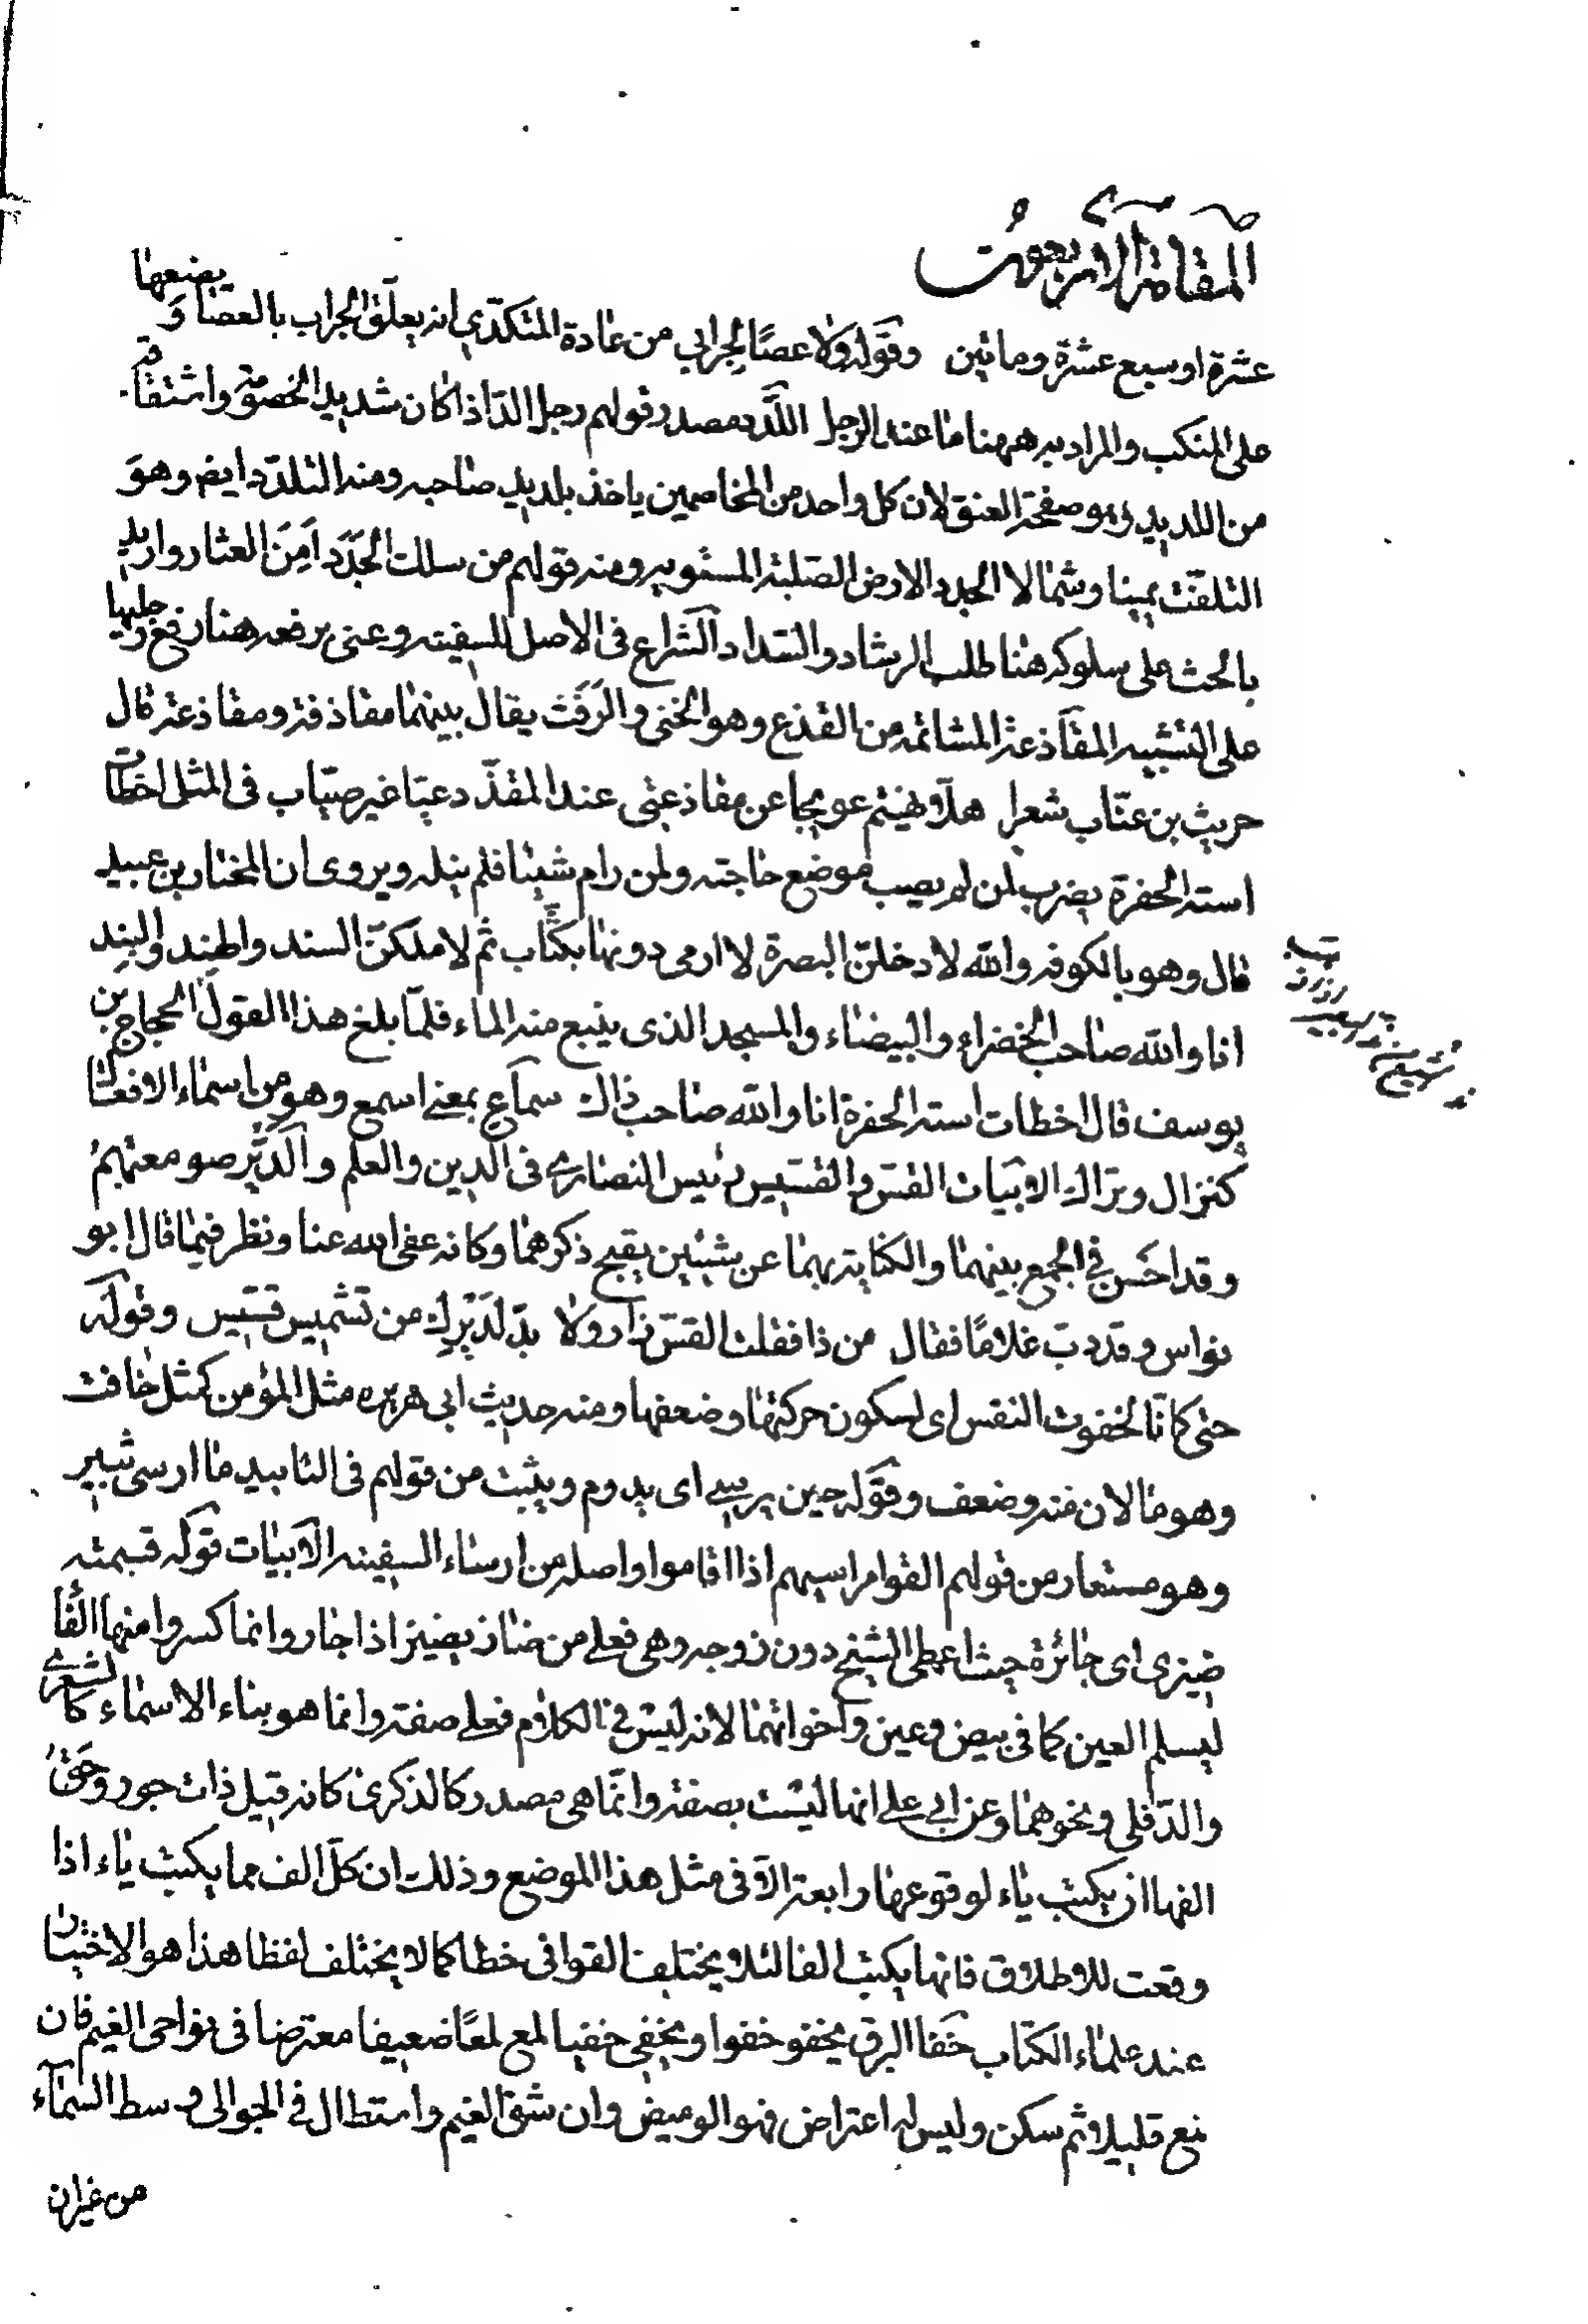 المقامة الاربعون
عشرة او سبع عشرة ومائتين وقوله ولا عصًا لجرابي من عادة المتكدّي انه يعلّق الجراب بالعصا و يضعها
على المنكب والمراد به ههنا ما عند الرجل اللّدد مصدر قولهم رجل الدّ اذا كان شديد الخصومة واشتقاقه
من اللديد وهو صفحة العنق لان كل واحد من المخاصمين ياخذ بلديد صاحبه ومنه التلدّد ايضا وهو
التلفّت يمينا وشمالا الجدد الارض الصّلبة المستويه ومنه قولهم من سلك الجَدَد اَمِنَ العثار واريد
بالحث على سلوكه هنا طلب الرشاد والسّداد الشراع فى الاصل للسفينه وعنى برفعه هنا رفع رجليها
على التشبيه المقاذعة المشاتمة من القذع وهو الخنى والرَفَث يقال بينهما مقاذفة ومقاذعة قال
حريث بن عتّاب شعرا هلّا نهيتم عويجا عن مقاذعتى عند المقذّ دعيّا غير صيّاب فى المثل اخطات
استه الحفرة يضرب لمن لم يصب موضع حاجته ولمن رام شيئا فلم ينله ويروى ان المختار بن عبيد
قال وهو بالكوفه والله لادخلنّ البصرة لا ارمى دونها بكتّاب ثم لاملكنّ السند والهند والبند
انا والله صاحب الخضراء والبيضاء والمسجد الذى ينبع منه الماء فلمّا بلغ هذا القول الحجاج بن
يوسف قال اخطات استه الحفرة انا والله صاحب ذاك سماعِ بمعنى اسمع وهو من اسماء الافعال
كنزال وتراك الابيات القسّ والقسّيس رئيس النصارى فى الدين والعلم والدّير صومعتهم
وقد احسن فى الجمع بينهما والكناية بهما عن شيئين يقبح ذكرهما وكانه عفى الله عنا ونظر فيما قال ابو
نواس وقد دبّ غلامًا فقال من ذا فقلت القسّ زار ولا بدّ لدَيْرك من تشميس قسّيس وقوله
حتى كانّا لخفوت النفس اى لسكون حركتها وضعفها ومنه حديث ابى هريره مثل المؤمن كمثل خافت
وهو ما لان منه وضعف وقوله حين يرسى اى يدوم ويثبت من قولهم فى التابيد ما ارسى ثبير
وهو مستعار من قولهم القوا مراسيهم اذا اقاموا واصله من ارساء السفينه الابيات قوله قسمته
ضيزى اى جائرة حيث اعطى الشيخ دون زوجه وهى فعلى من ضاز يضيز اذا جار وانما كسروا منها الفا
ليسلم العين كما فى بيض وعين واخواتهما لانه ليس فى الكلام فعلى صفة وانما هو بناء الاسماء كالشعرى
والدّفلى ونحوهما وعن ابى على انها ليست بصفة وانّما هى مصدر كالذكرى كانه قيل ذات جور وحق
الفها ان يكتب ياء لوقوعها رابعة الّا فى مثل هذا الموضع وذلك ان كلّ الف مما يكتب ياء اذا
وقعت للاطلاق فانها يكتب الفا لئلا يختلف القوافى خطا كما لا يختلف لفظا هذا هو الاختيار
عند علماء الكتّاب خفا البرق يخفو خفوا ويخفى خفيا لمع لمعًا ضعيفا معترضا فى نواحى الغيم فان
لمع قليلا ثم سكن وليس له اعتراض فهو الوميض وان شقّ الغيم واستطال فى الجوالى وسط السّمآء
من غيران